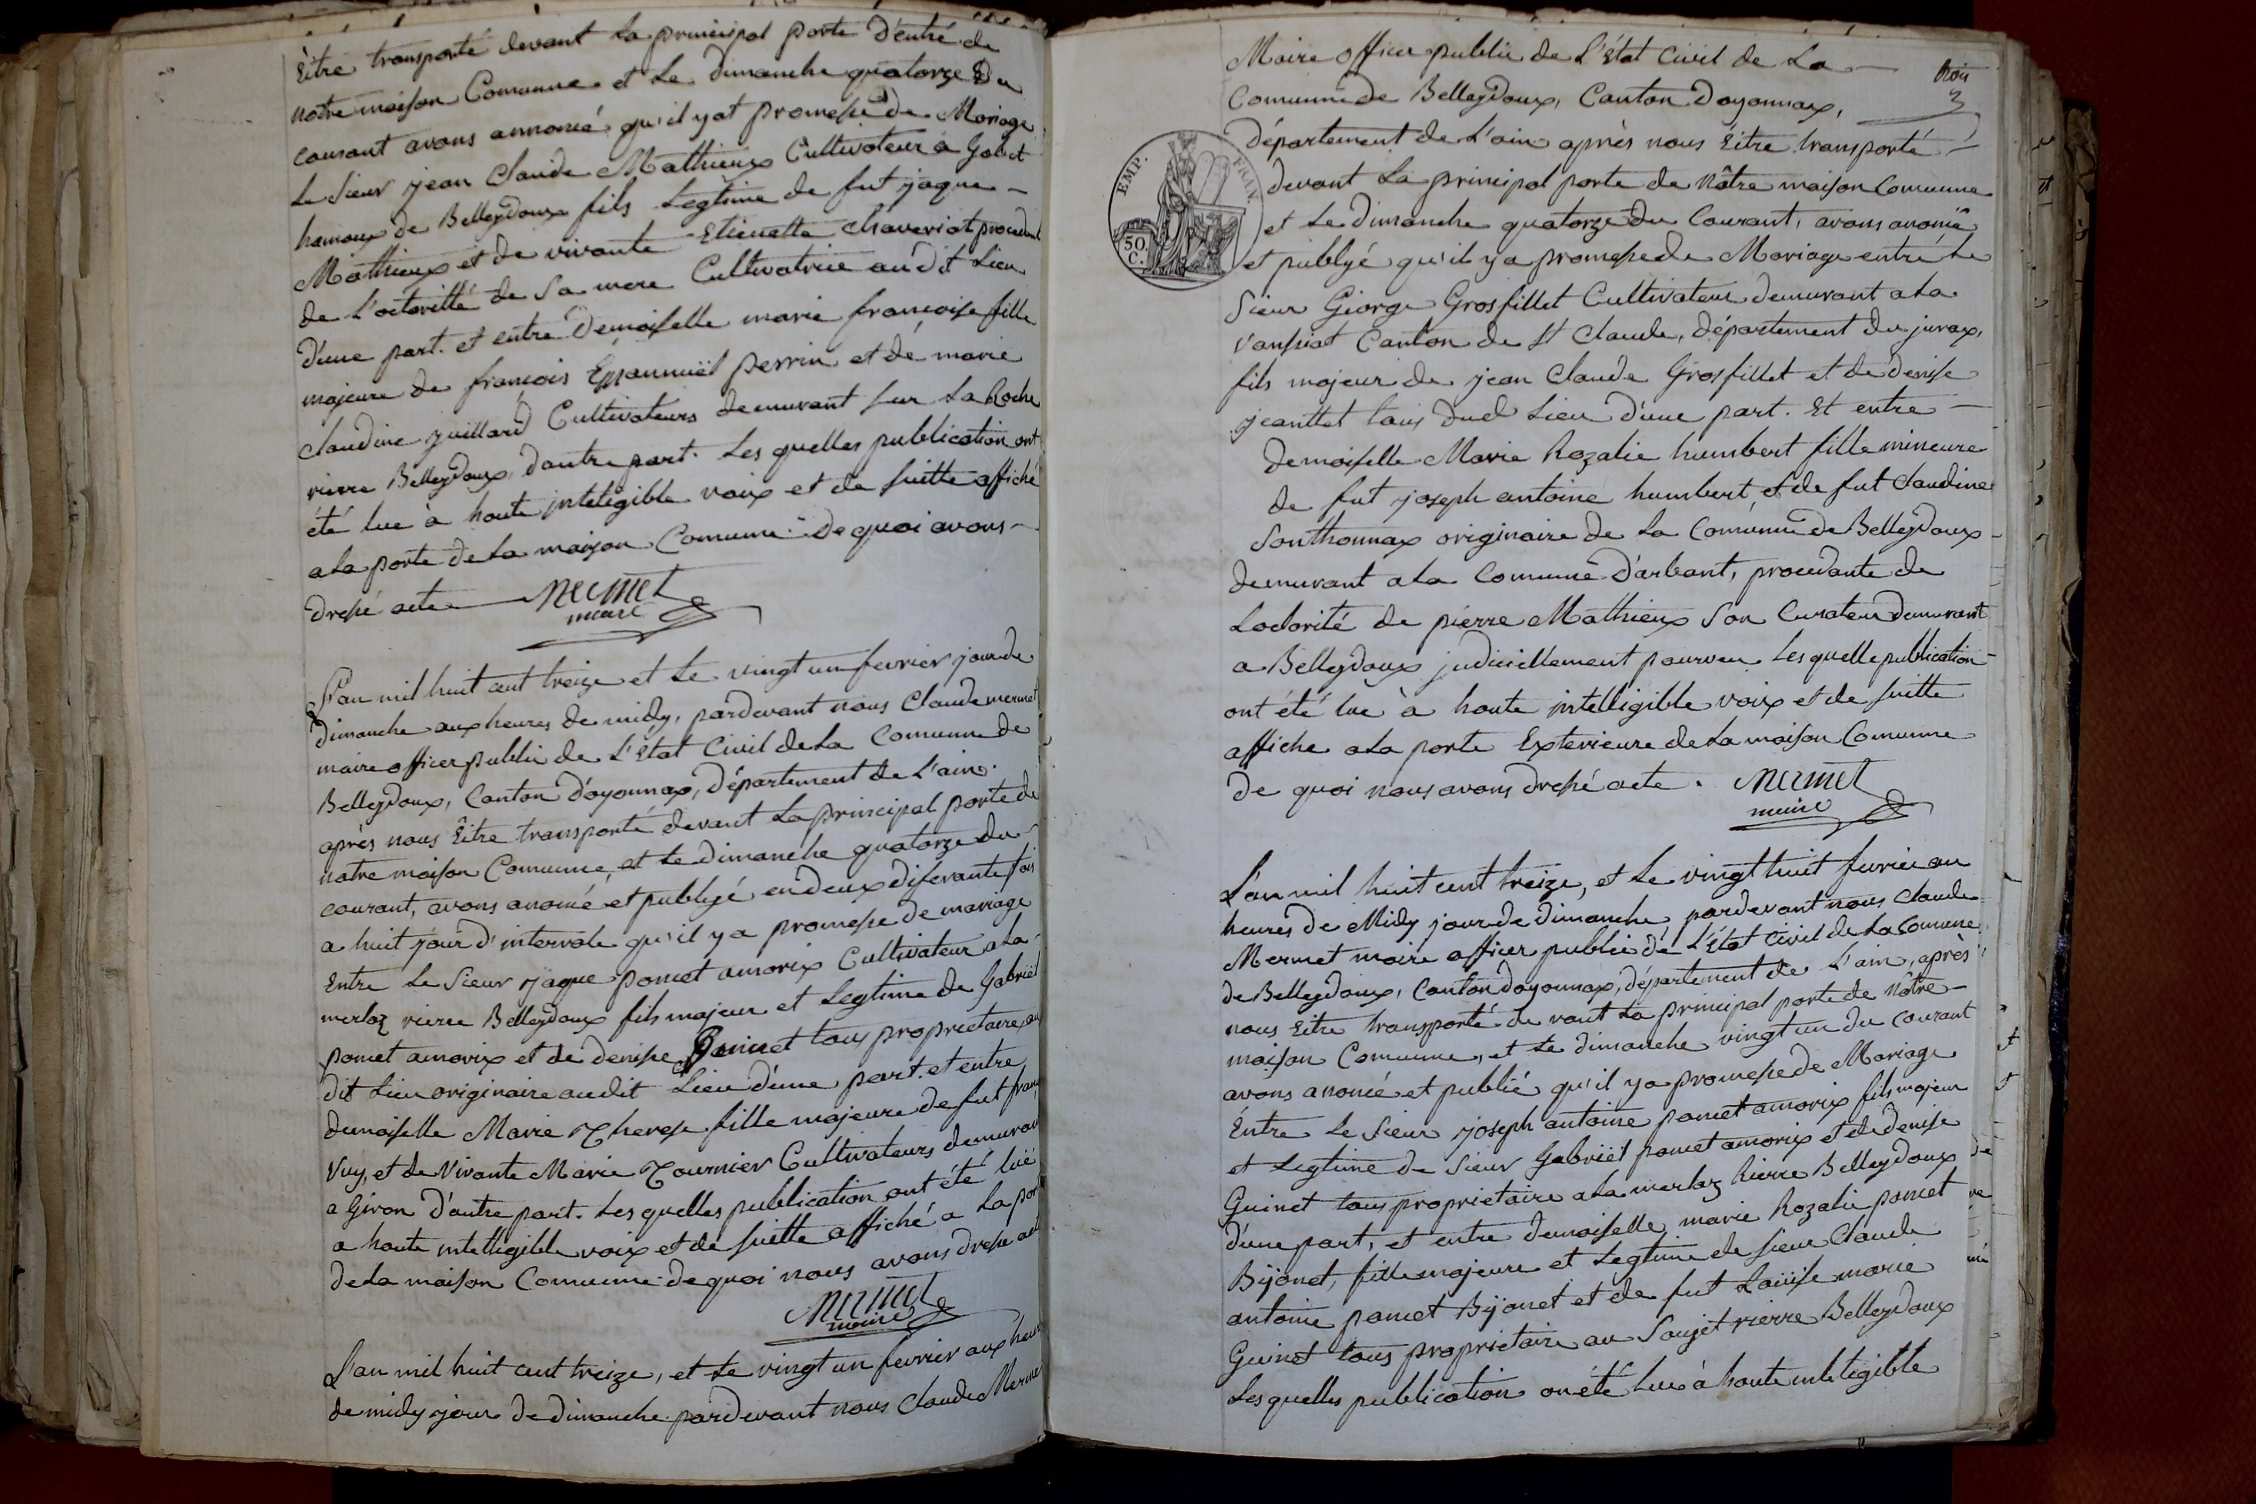 Eitre transporté devant la principal porte D'entré de
notre maison Comunne et Le dimanche quatorze Du
courant avons annoncé qu'il y at promesse de Mariage
Le Sieur jean Claude Mathieux Cultivateur à Gobet
hamaux de Belleydoux fils Legtime de fut jaque
Mathieux et de vivante Etienette Chaveriat procedant
de L'octorillté de Sa mere Cultivatrice au dit Lieu
d'une part. et entre Demoiselle marie françoise fille
majeure de françois Emanuiel Perrin et de marie
Claudine juillard Cultivateurs demurant Sur La Roche
rierre Belleydoux, dautre part. Les quelles publication ont
été lue à haute inteligible voix et de Suitte affiché
a La porte de La maison Comunne. De quoi avons
dressé acte Mermet
maire
L'an mil huit cent treize et Le vingt un fevrier jour de
dimanche aux heures de midy, pardevant nous Claude mermet
maire officer public de L'Etat Civil de La Comunne de
Belleydoux, Canton d'oyonnax, Département de L'ain.
après nous Eitre transporté devant La principal porte de
notre maison Comunne, et Le dimanche quatorze du
courant, avons anoncé et publyé en deux diferante fois
a huit jour d'intervale qu'il y a promesse de mariage
Entre Le Sieur jaque poncet amorix Cultivateur a La
merlaz rierre Belleydoux fils majeur et Legtime de Gabriël
poncet amorix et de denise Guinet tous proprietaire au
dit Lieu originaire audit Lieu d'une part. et entre
demoiselle Marie Therese fille majeure de fut
Vuy, et de Vivante Marie Tournier Cultivateurs demurant
a Giron d'autre part. Les quelles publication ont été lüe
a haute intelligible voix et de Suitte affiché a La porte
de La maison Comunne. de quoi nous avons dressé acte
Mermet
maire
L'an mil huit cent treize, et Le vingt un fevrier aux heures
de midy jour de dimanche pardevant nous Claude Mermet
Maire officer public de L'Etat Civil de La
Comunne de Belleydoux, Canton Doyonnax,
trois
3
Département de L'ain après nous Eitre transporté
devant La principal porte de Nôtre maison Comunne
et Le dimanche quatorze du Courant, avons anoncé
et publyé qu'il y a promesse de Mariage entre Le
Sieur George Grosfillet Cultivateur demurant a La
Vansiat Canton de St Claude, département du juras,
fils majeur de jean Claude Grosfillet et de denise
jeanttet tous dud Lieu d'une part. Et entre
demoiselle Marie Rozalie humbert fille mineure
de fut joseph antoine humbert, et de fut Claudine
Sonthonnax originaire de La Comunne de Belleydoux
demurant a La Comunne d'arbant, procedante de
Loctorité de pierre Mathieux Son Curateur demurant
a Belleydoux judiciellement pourveu Les quelle publication
ont été lue à haute intelligible voix et de Suitte
affiche a La porte Exterieure de La maison Comunne
de quoi nous avons dressé acte. Mermet
maire
L'an mil huit cent treize, et Le vingt huit fevrier au
heures de Midy jour de dimanche, pardevant nous Claude
Mermet maire officer public de L'Etat Civil de La Comune
de Belleydoux, Canton doyonnax, département de L'ain, après
nous Eitre transporté de vant La principal porte de Nôtre
maison Comunne, et Le dimanche vingt un du courant
avons anoncé et publié qu'il y a promesse de Mariage
Entre Le Sieur joseph antoine poncet amorix fils majeur
et Legtime de Sieur Gabriël poncet amorix et de denise
Guinet tous proprietaire a La merlaz Rierre Belleydoux
d'une part, et entre demoiselle, marie Rozalie poncet
Bijonet, fille majeure et Legtime de Sieur Claude
antoine poncet Bijonet et de fut Loüise marie
Guinet tous proprietaire au Saujet rierre Belleydoux
Les quelles publication on été Lue à haute inteligible
EMP. FRAN.
50.
C.